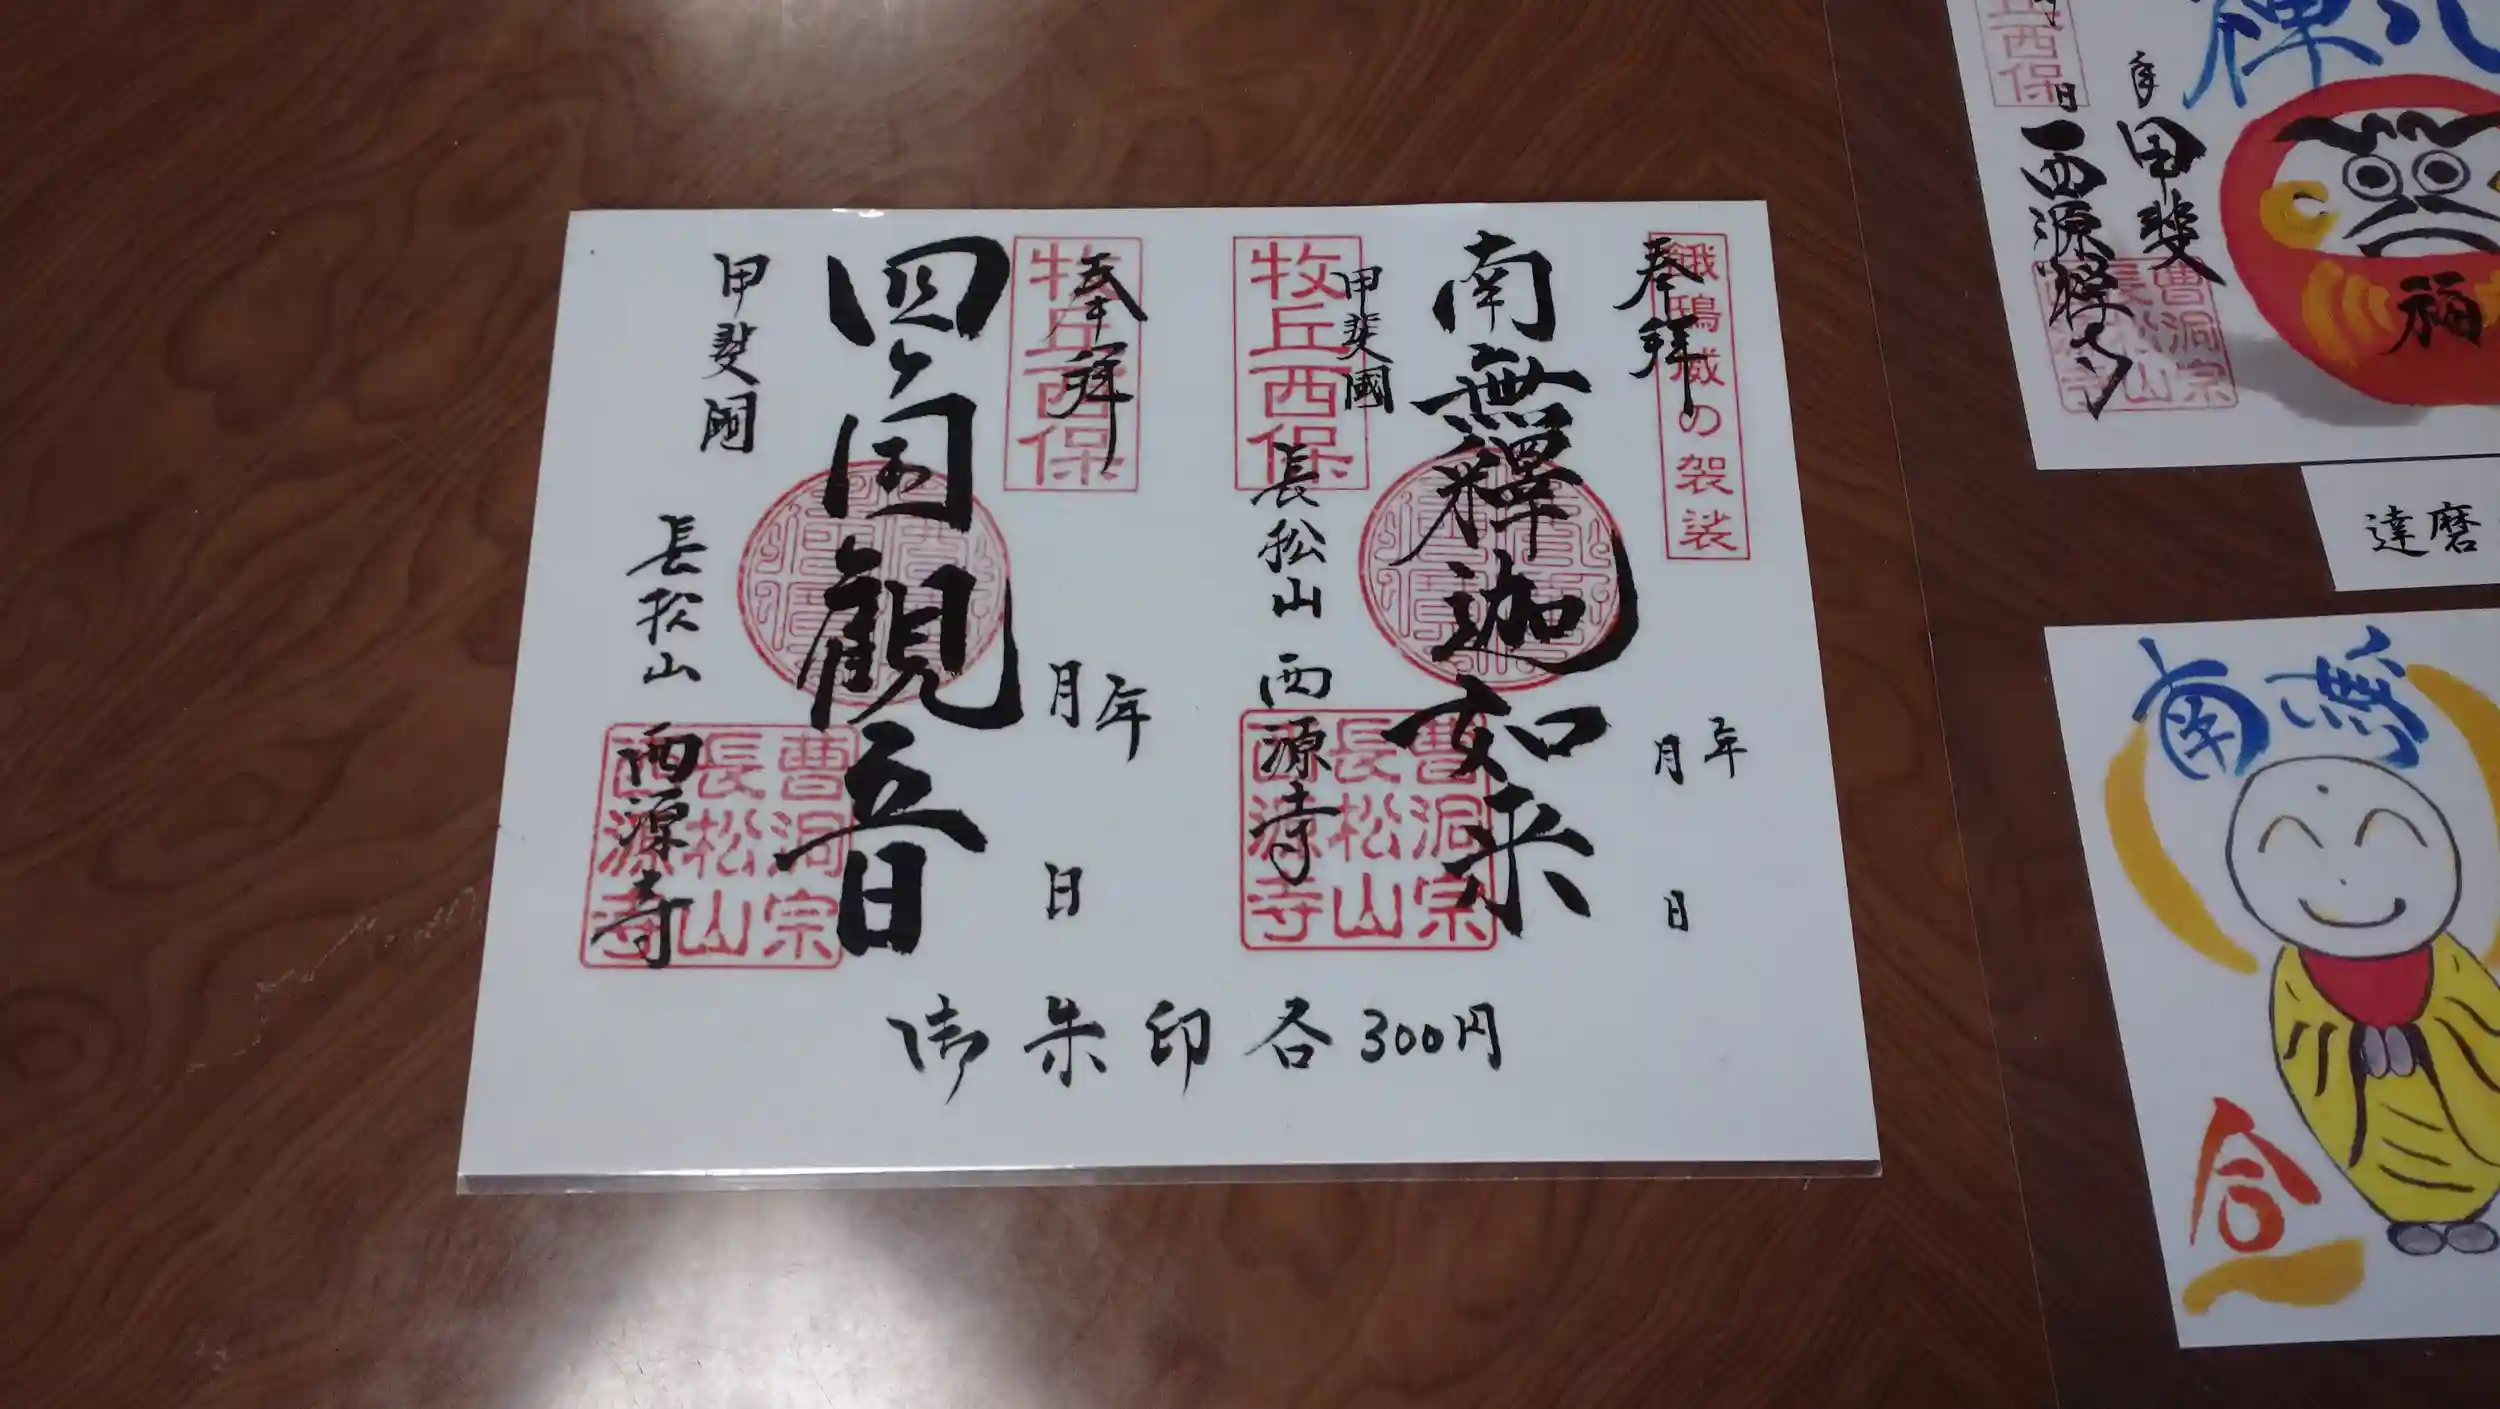 奉拝
餓鬼威の袈裟
年
月
日
南無釋迦如来
甲斐國
長松山
西源寺
牧丘西保
曹洞宗
長松山
西源寺
奉拝
牧丘西保
年
月
日
四ヶ国観音
甲斐國
長松山
西源寺
曹洞宗
長松山
西源寺
御朱印各300円
禅
福
甲斐
西源禅寺
日
丘西保
曹洞宗
長松山
達磨
南無
合